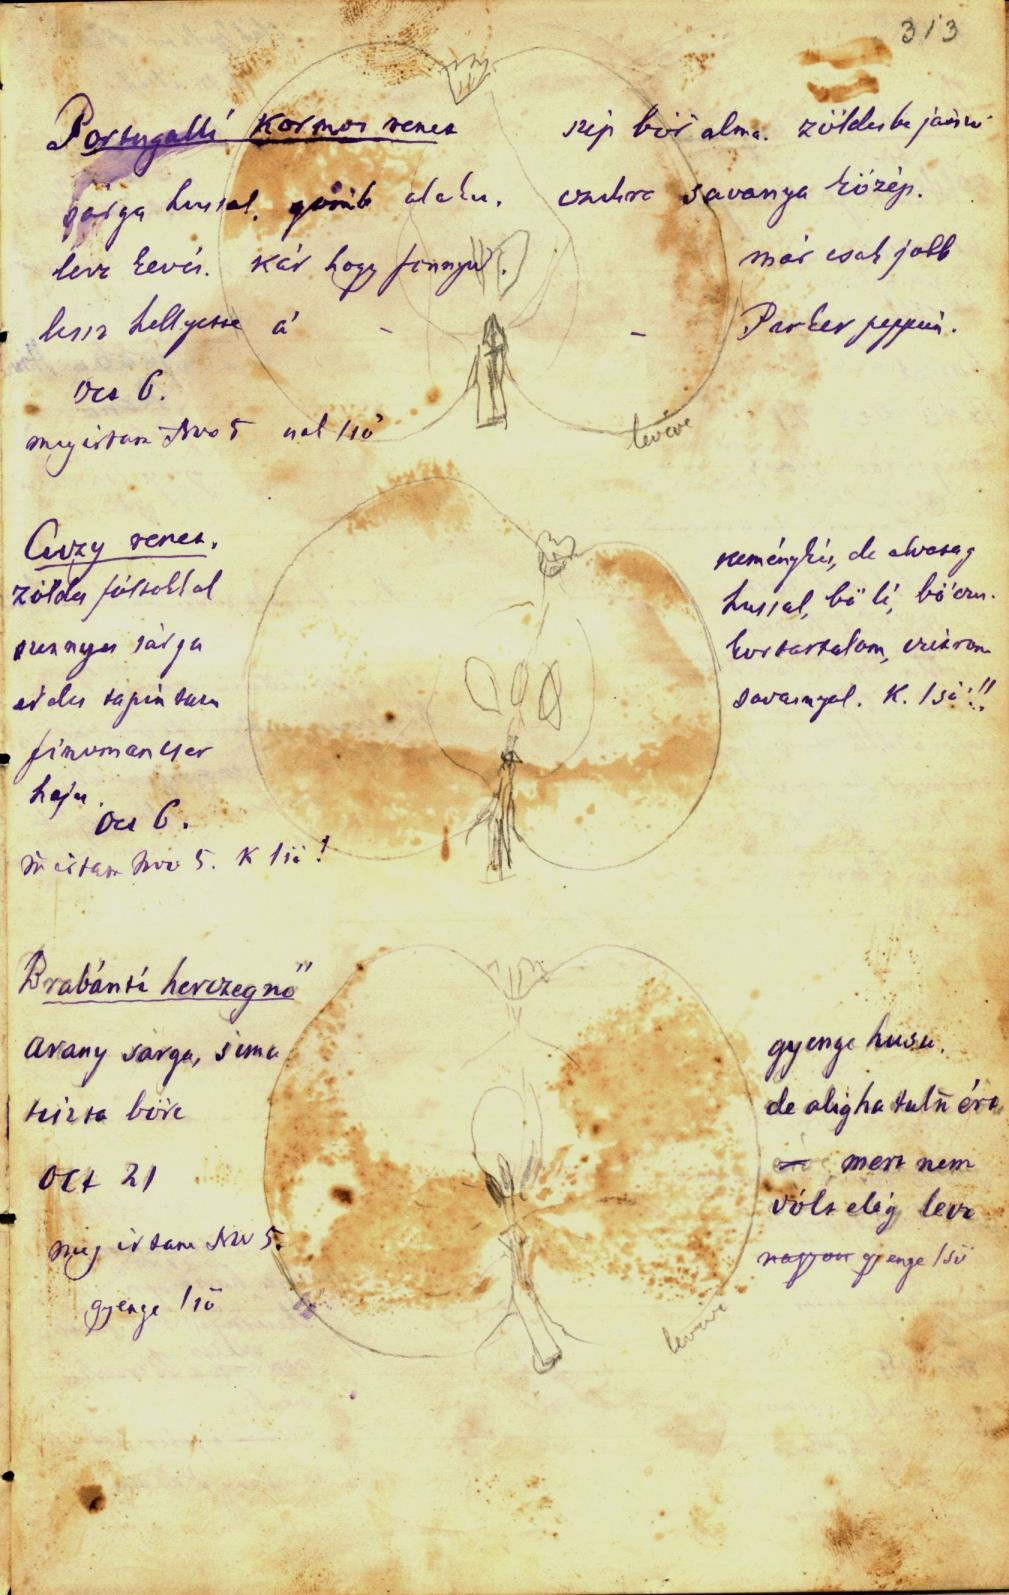 313
Portugalli kormos renet szép bőr alma. zöldesbe játszó
sárga hussal, gömb alaku, czukra savanya közép.
leve kevés. Kár hogy fonnyad. már csak jobb
lesz hellyette a' - - Parker peppin.
Oct 6.
meg irtam Nov 5 1ső
levive
Cuzy renet.
zöldes foltokkal
szennyes sárga
érdes
finoman cser
haju.
Oct 6.
irtam Nov 5. K 1ső!
keménykés, de olvatag
hussal, bő lé, bő czu-
kortartalom, citrom
savanynyal. K. 1ső!!
Brabánti herczegnő
arany sárga, sima
tiszta bőre
Oct 21
meg irtam Nov 5.
gyenge 1ső
gyenge husu.
de aligha ért
mert nem
vólt elég leve
nagyon gyenge 1ső
levive